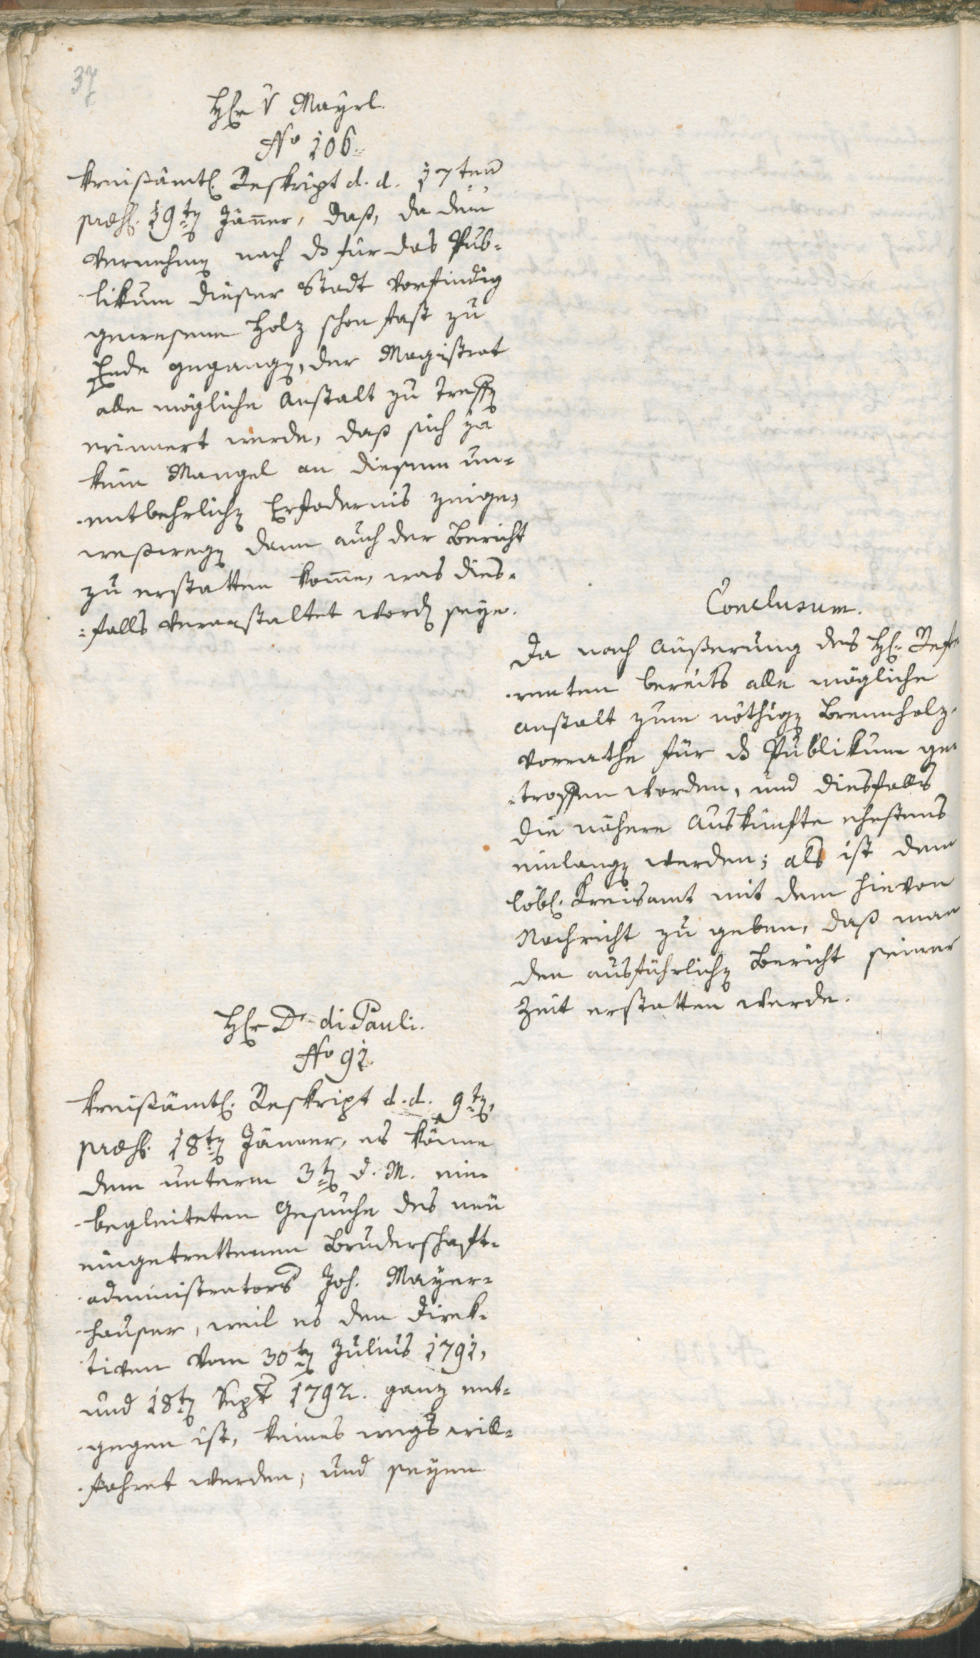 37
Hr. v Mayrl.
No 106.
Kreißämtl. Reskript d. d. 17ten
præs. 19ten Jäner, daß, da dem
Vernehmen nach ds für das Pub-
likum dieser Stadt vorfindig
gewesene Holz schon fast zu
Ende gegangen, der Magistrat
alle mögliche Anstalt zu treffen
erinnert werde, daß sich ja
kein Mangel an diesem un-
entbehrlichen Erfodernis zeige,
weßwegen dann auch der Bericht
zu erstatten kome, was dies-
falls veranstaltet worden seye.
Conclusum.
Da nach Äußerung des H. Refe-
renten bereits alle mögliche
Anstalt zum nöthigen Brennholz-
vorrathe für ds Publikum ge-
troffen worden, und diesfalls
die nähere Auskünfte ehestens
einlangen werden; als ist dem
löbl. Kreisamt mit dem hievon
Nachricht zu geben, daß man
den ausführlichen Bericht seiner
Zeit erstatten werde.
Hr. Dr. di Pauli.
No 91.
Kreißämtl. Reskript d. d. 9ten,
præs. 18ten Jänner, es könne
dem unterm 3ten d. M. ein-
begleiteten Gesuche des neu
eingetrettenen Bruderschaft-
administrators Joh. Mayer-
hauser, weil es den Direk-
tiven vom 30ten Julius 1791,
und 18ten Sept 1792. ganz ent-
gegen ist, keines wegs will-
fahret werden, und seyen